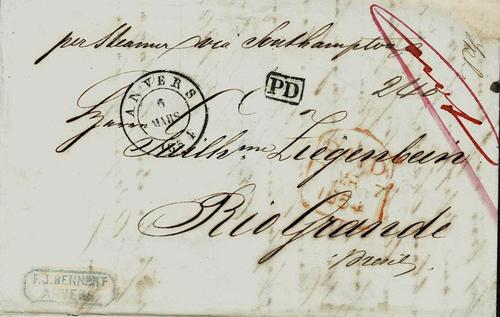 per Steamer via Southampton
ANVERS
6
MARS
PD
240
Herrn
Wilhm Ziegenbein
PAID
Rio Grande
Bresil
F.J. BENNERT
ANVERS